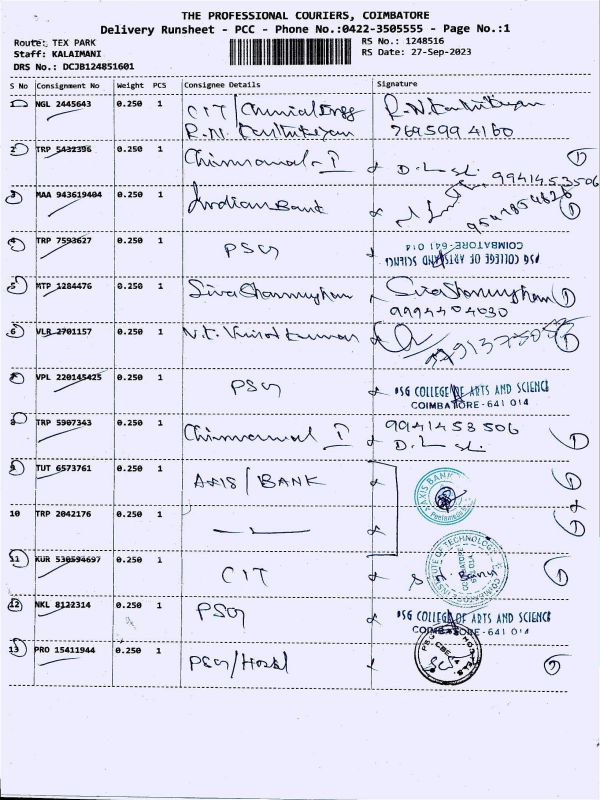 THE PROFESSIONAL COURIERS, COIMBATORE
Delivery Runsheet - PCC - Phone No.:0422-3505555 - Page No.:1
Route: TEX PARK
RS No.: 1248516
Staff: KALAIMANI
RS Date: 27-Sep-2023
DRS No.: DCJB124851601
S No Consignment No Weight PCS Consignee Details Signature
1 NGL 2445643 0.250 1 CIT/Chemical Engg
R.N. Karthikeyan 7695994160
2 TRP 5432396 0.250 1 I
9941453506
3 MAA 943619404 0.250 1 Indian Bank
4 TRP 7593627 0.250 1 PSG PSG COLLEGE OF ARTS AND SCIENCE
COIMBATORE-641 014
5 MTP 1284476 0.250 1 Siva Shanmugham Siva Shanmugham
9994404030
6 VLR 2701157 0.250 1 N.K. Vinoth Kumar
7 VPL 220145425 0.250 1 PSG PSG COLLEGE OF ARTS AND SCIENCE
COIMBATORE-641 014
8 TRP 5907343 0.250 1 I 9941453506
9 TUT 6573761 0.250 1 AXIS/BANK AXIS BANK
10 TRP 2042176 0.250 1
11 KUR 530594697 0.250 1 CIT COIMBATORE INSTITUTE OF TECHNOLOGY
12 NKL 8122314 0.250 1 PSG PSG COLLEGE OF ARTS AND SCIENCE
COIMBATORE-641 014
13 PRO 15411944 0.250 1 PSG/Hostel PSG HOSTELS